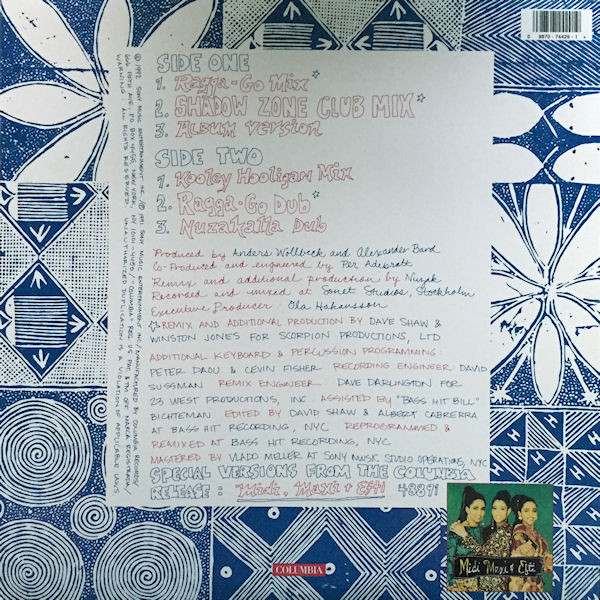 SIDE ONE
1. Ragga-Go Mix☆
2. SHADOW ZONE CLUB MIX☆
3. Album Version
SIDE TWO
1. Kooley Hooligan Mix
2. Ragga-Go Dub☆
3. Nuzakatta Dub
Produced by Anders Wollbeck and Alexander Bard
Co-Produced and engineered by Per Adebratt
Remix and additional production by Nuzak
Recorded and mixed at Sonet Studios, Stockholm
Executive Producer: Ola Hakansson
☆REMIX AND ADDITIONAL PRODUCTION BY DAVE SHAW &
WINSTON JONES FOR SCORPION PRODUCTIONS, LTD
ADDITIONAL KEYBOARD & PERCUSSION PROGRAMMING:
PETER DAOU & CEVIN FISHER RECORDING ENGINEER: DAVID
SUSSMAN REMIX ENGINEER DAVE DARLINGTON FOR
23 WEST PRODUCTIONS, INC ASSISTED BY "BASS HIT BILL"
BICHTEMAN EDITED BY DAVID SHAW & ALBERT CABRERRA
AT BASS HIT RECORDING, NYC REPROGRAMMED &
REMIXED AT BASS HIT RECORDING, NYC
MASTERED BY VLADO MELLER AT SONY MUSIC STUDIO OPERATIONS, NYC
SPECIAL VERSIONS FROM THE COLUMBIA
RELEASE: "Midi, Maxi + Efti 48871
© 1992 SONY MUSIC ENTERTAINMENT INC./℗ 1991 SONY MUSIC ENTERTAINMENT INC./MANUFACTURED BY COLUMBIA RECORDS/
BOX 4455, NEW YORK, NY 10101-4450/"COLUMBIA" REG. U.S. PAT. & TM. OFF. MARCA REGISTRADA
WARNING: ALL RIGHTS RESERVED. UNAUTHORIZED DUPLICATION IS A VIOLATION OF APPLICABLE LAWS
0 9870-74429-1
COLUMBIA
Midi Maxi & Efti